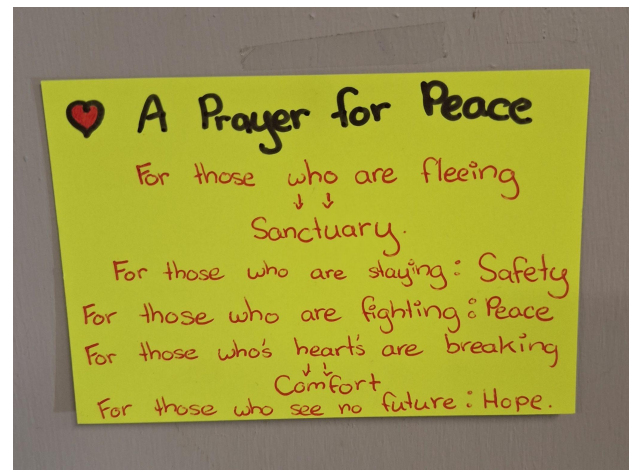 A Prayer for Peace
For those who are fleeing
Sanctuary.
For those who are staying: Safety
For those who are fighting: Peace
For those who's heart's are breaking
Comfort
For those who see no future: Hope.